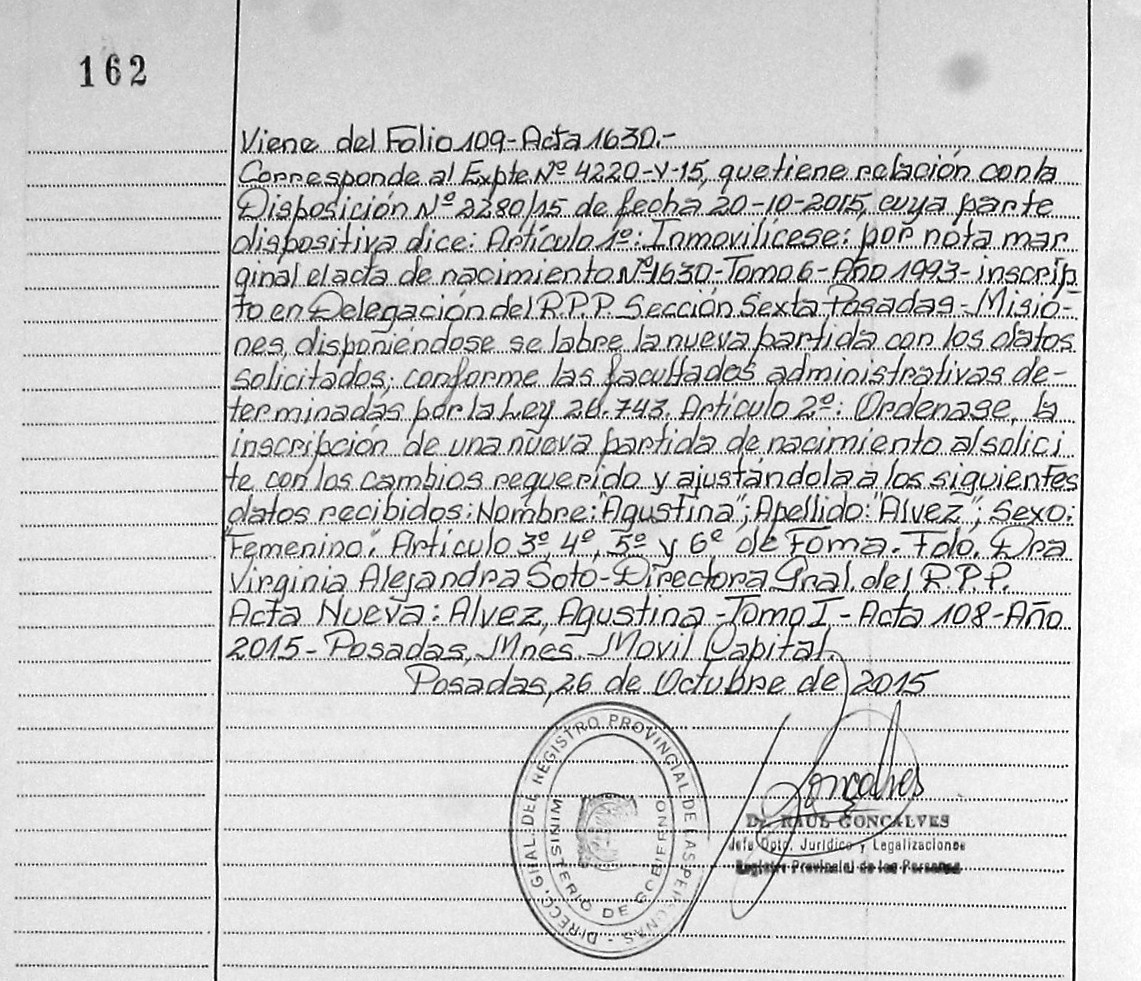 162
Viene del Folio 109-Acta 1630.-
Corresponde al Expte Nº 4220-V-15, que tiene relación con la
Disposición Nº 2280/15 de fecha 20-10-2015, cuya parte
dispositiva dice: Artículo 1º: Inmovilícese: por nota mar
ginal el acta de nacimiento Nº 1630-Tomo 6-Año 1993-inscrip
to en Delegación del R.P.P. Sección Sexta Posadas-Misio-
nes, disponiéndose se labre la nueva partida con los datos
solicitados; conforme las facultades administrativas de-
terminadas por la Ley 26.743. Artículo 2º: Ordenase, la
inscripción de una nueva partida de nacimiento al solici
te con los cambios requerido y ajustándola a los siguientes
datos recibidos: Nombre: "Agustina"; Apellido: "Alvez"; Sexo:
"Femenino". Artículo 3º, 4º, 5º y 6º de Foma. Fdo. Dra
Virginia Alejandra Soto-Directora Gral. del R.P.P.
Acta Nueva: Alvez, Agustina-Tomo I-Acta 108-Año
2015-Posadas, Mnes. Movil Capital.
Posadas, 26 de Octubre de 2015
DIRECC. GRAL. DEL REGISTRO PROVINCIAL DE LAS PERSONAS -
MINISTERIO DE GOBIERNO
Goncalves
Dr. RAUL GONCALVES
Jefe Dpto. Jurídico y Legalizaciones
Registro Provincial de las Personas